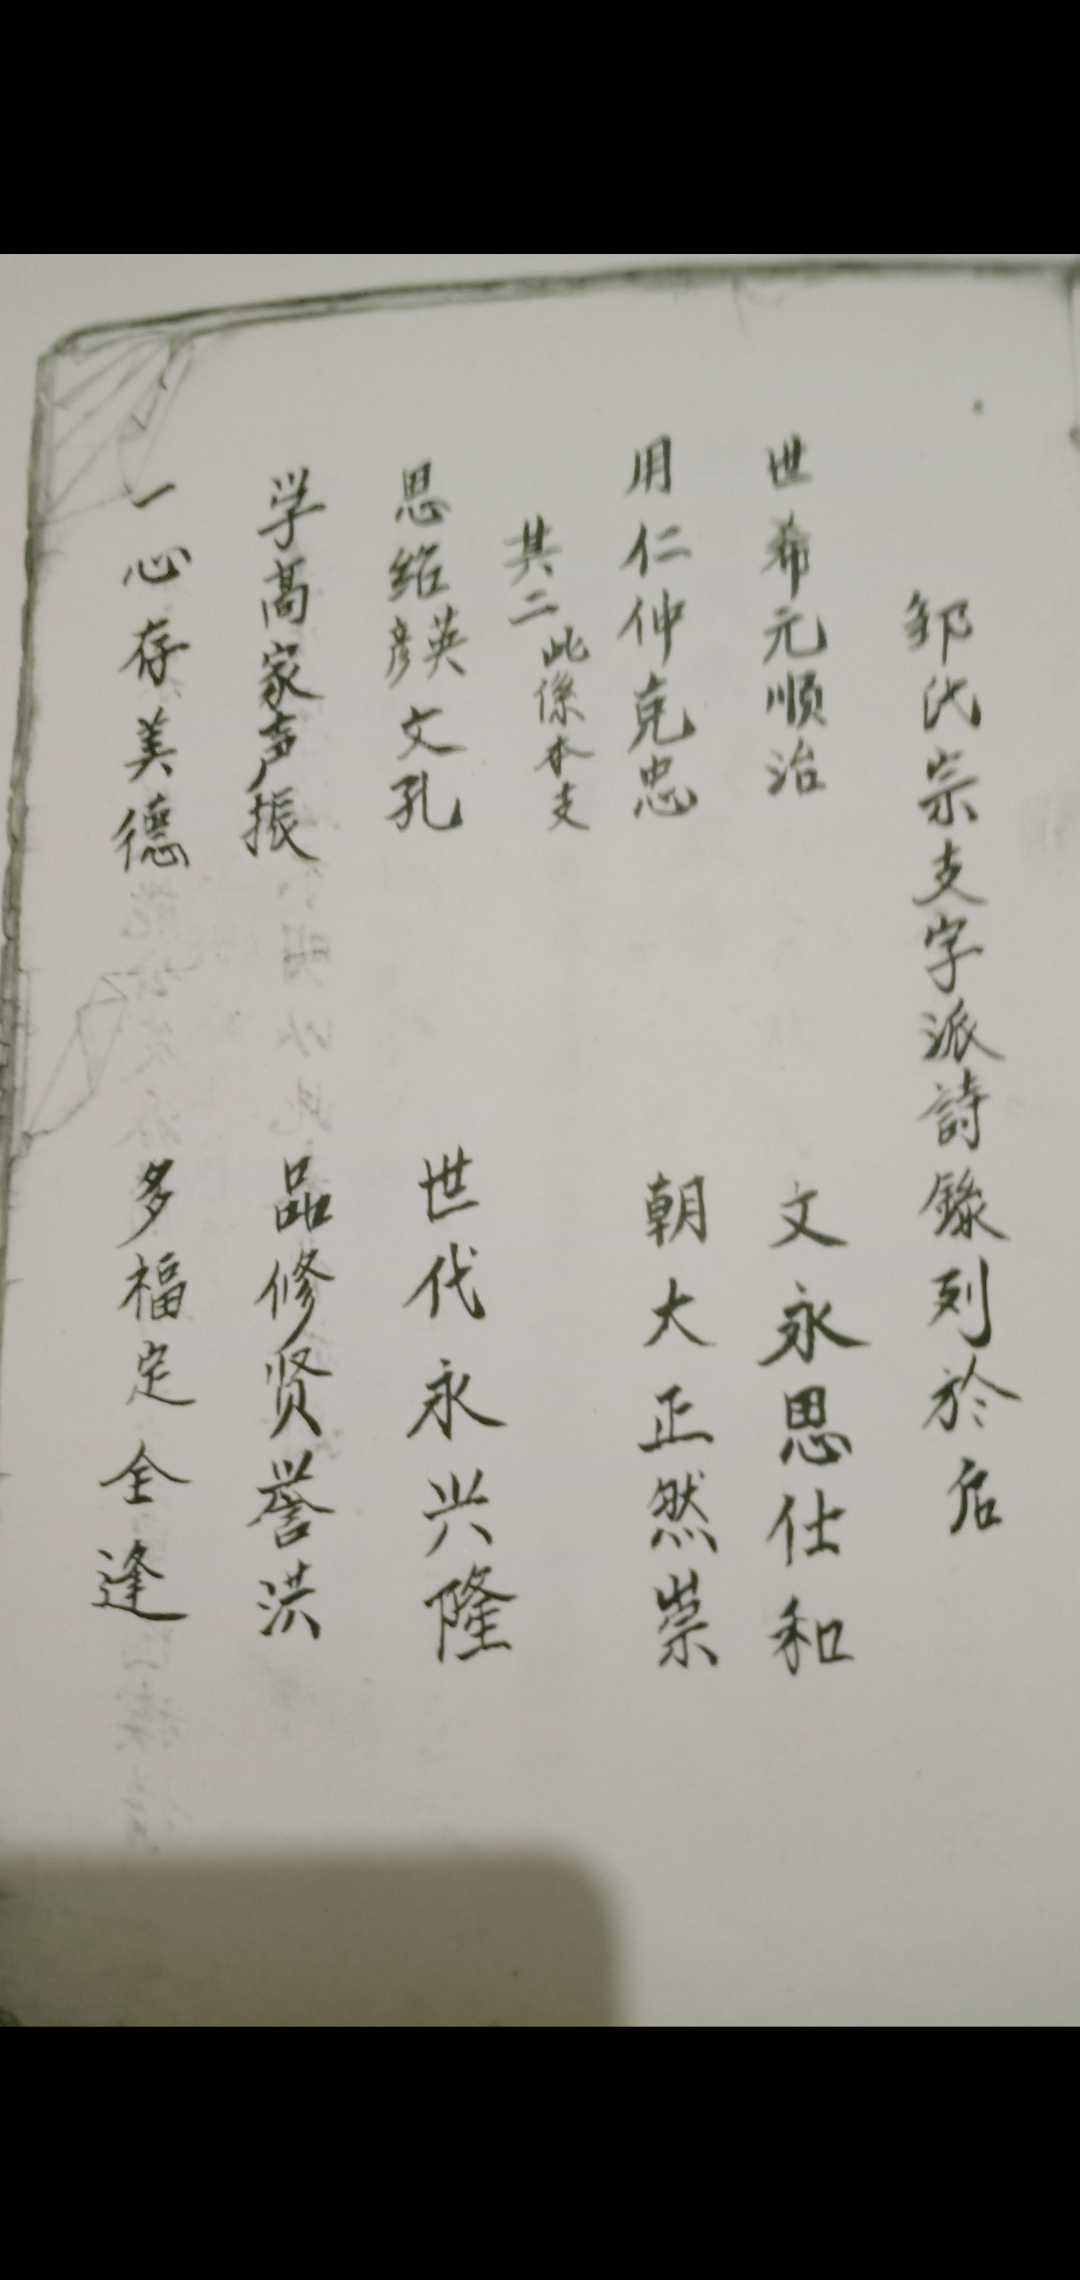 邹氏宗支字派詩錄列於后
世希元顺治 文永思仕和
用仁仲克忠 朝大正然崇
其二 此係本支
思绍英彦文孔 世代永兴隆
学高家声振 品修贤誉洪
一心存美德 多福定全逢